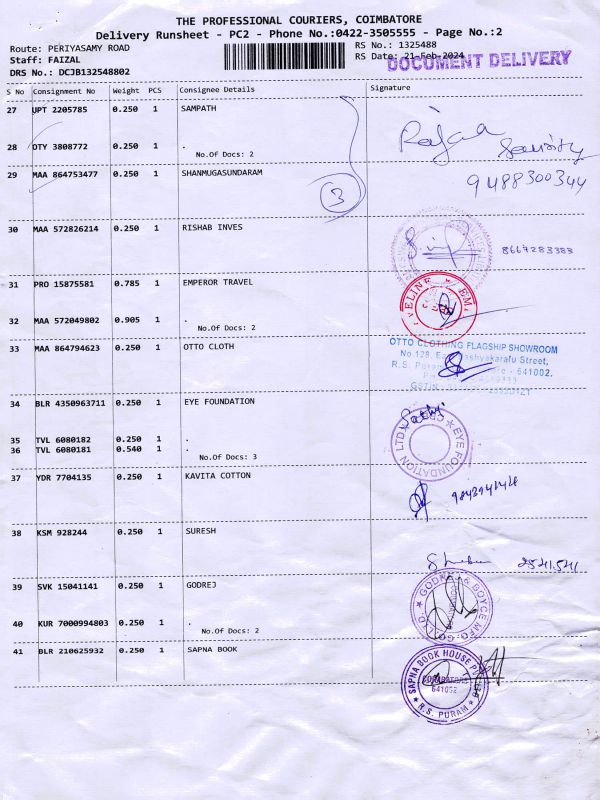 THE PROFESSIONAL COURIERS, COIMBATORE
Delivery Runsheet - PC2 - Phone No.:0422-3505555 - Page No.:2
Route: PERIYASAMY ROAD
RS No.: 1325488
Staff: FAIZAL
RS Date: 21-Feb-2024
DOCUMENT DELIVERY
DRS No.: DCJB132548802
S No Consignment No Weight PCS Consignee Details Signature
27 UPT 2205785 0.250 1 SAMPATH
28 OTY 3808772 0.250 1 .
No.Of Docs: 2
29 MAA 864753477 0.250 1 SHANMUGASUNDARAM
3
9488300344
30 MAA 572826214 0.250 1 RISHAB INVES
8667283383
31 PRO 15875581 0.785 1 EMPEROR TRAVEL
32 MAA 572049802 0.905 1 .
No.Of Docs: 2
33 MAA 864794623 0.250 1 OTTO CLOTH
OTTO CLOTHING FLAGSHIP SHOWROOM
No.128, Street,
R.S. Puram 641002.
34 BLR 4350963711 0.250 1 EYE FOUNDATION
EYE FOUNDATION LTD
35 TVL 6080182 0.250 1 .
36 TVL 6080181 0.540 1 .
No.Of Docs: 3
37 YDR 7704135 0.250 1 KAVITA COTTON
38 KSM 928244 0.250 1 SURESH
2541541
39 SVK 15041141 0.250 1 GODREJ
GODREJ & BOYCE MFG. CO.
40 KUR 7000994803 0.250 1 .
No.Of Docs: 2
41 BLR 210625932 0.250 1 SAPNA BOOK
SAPNA BOOK HOUSE
641002
R.S. PURAM